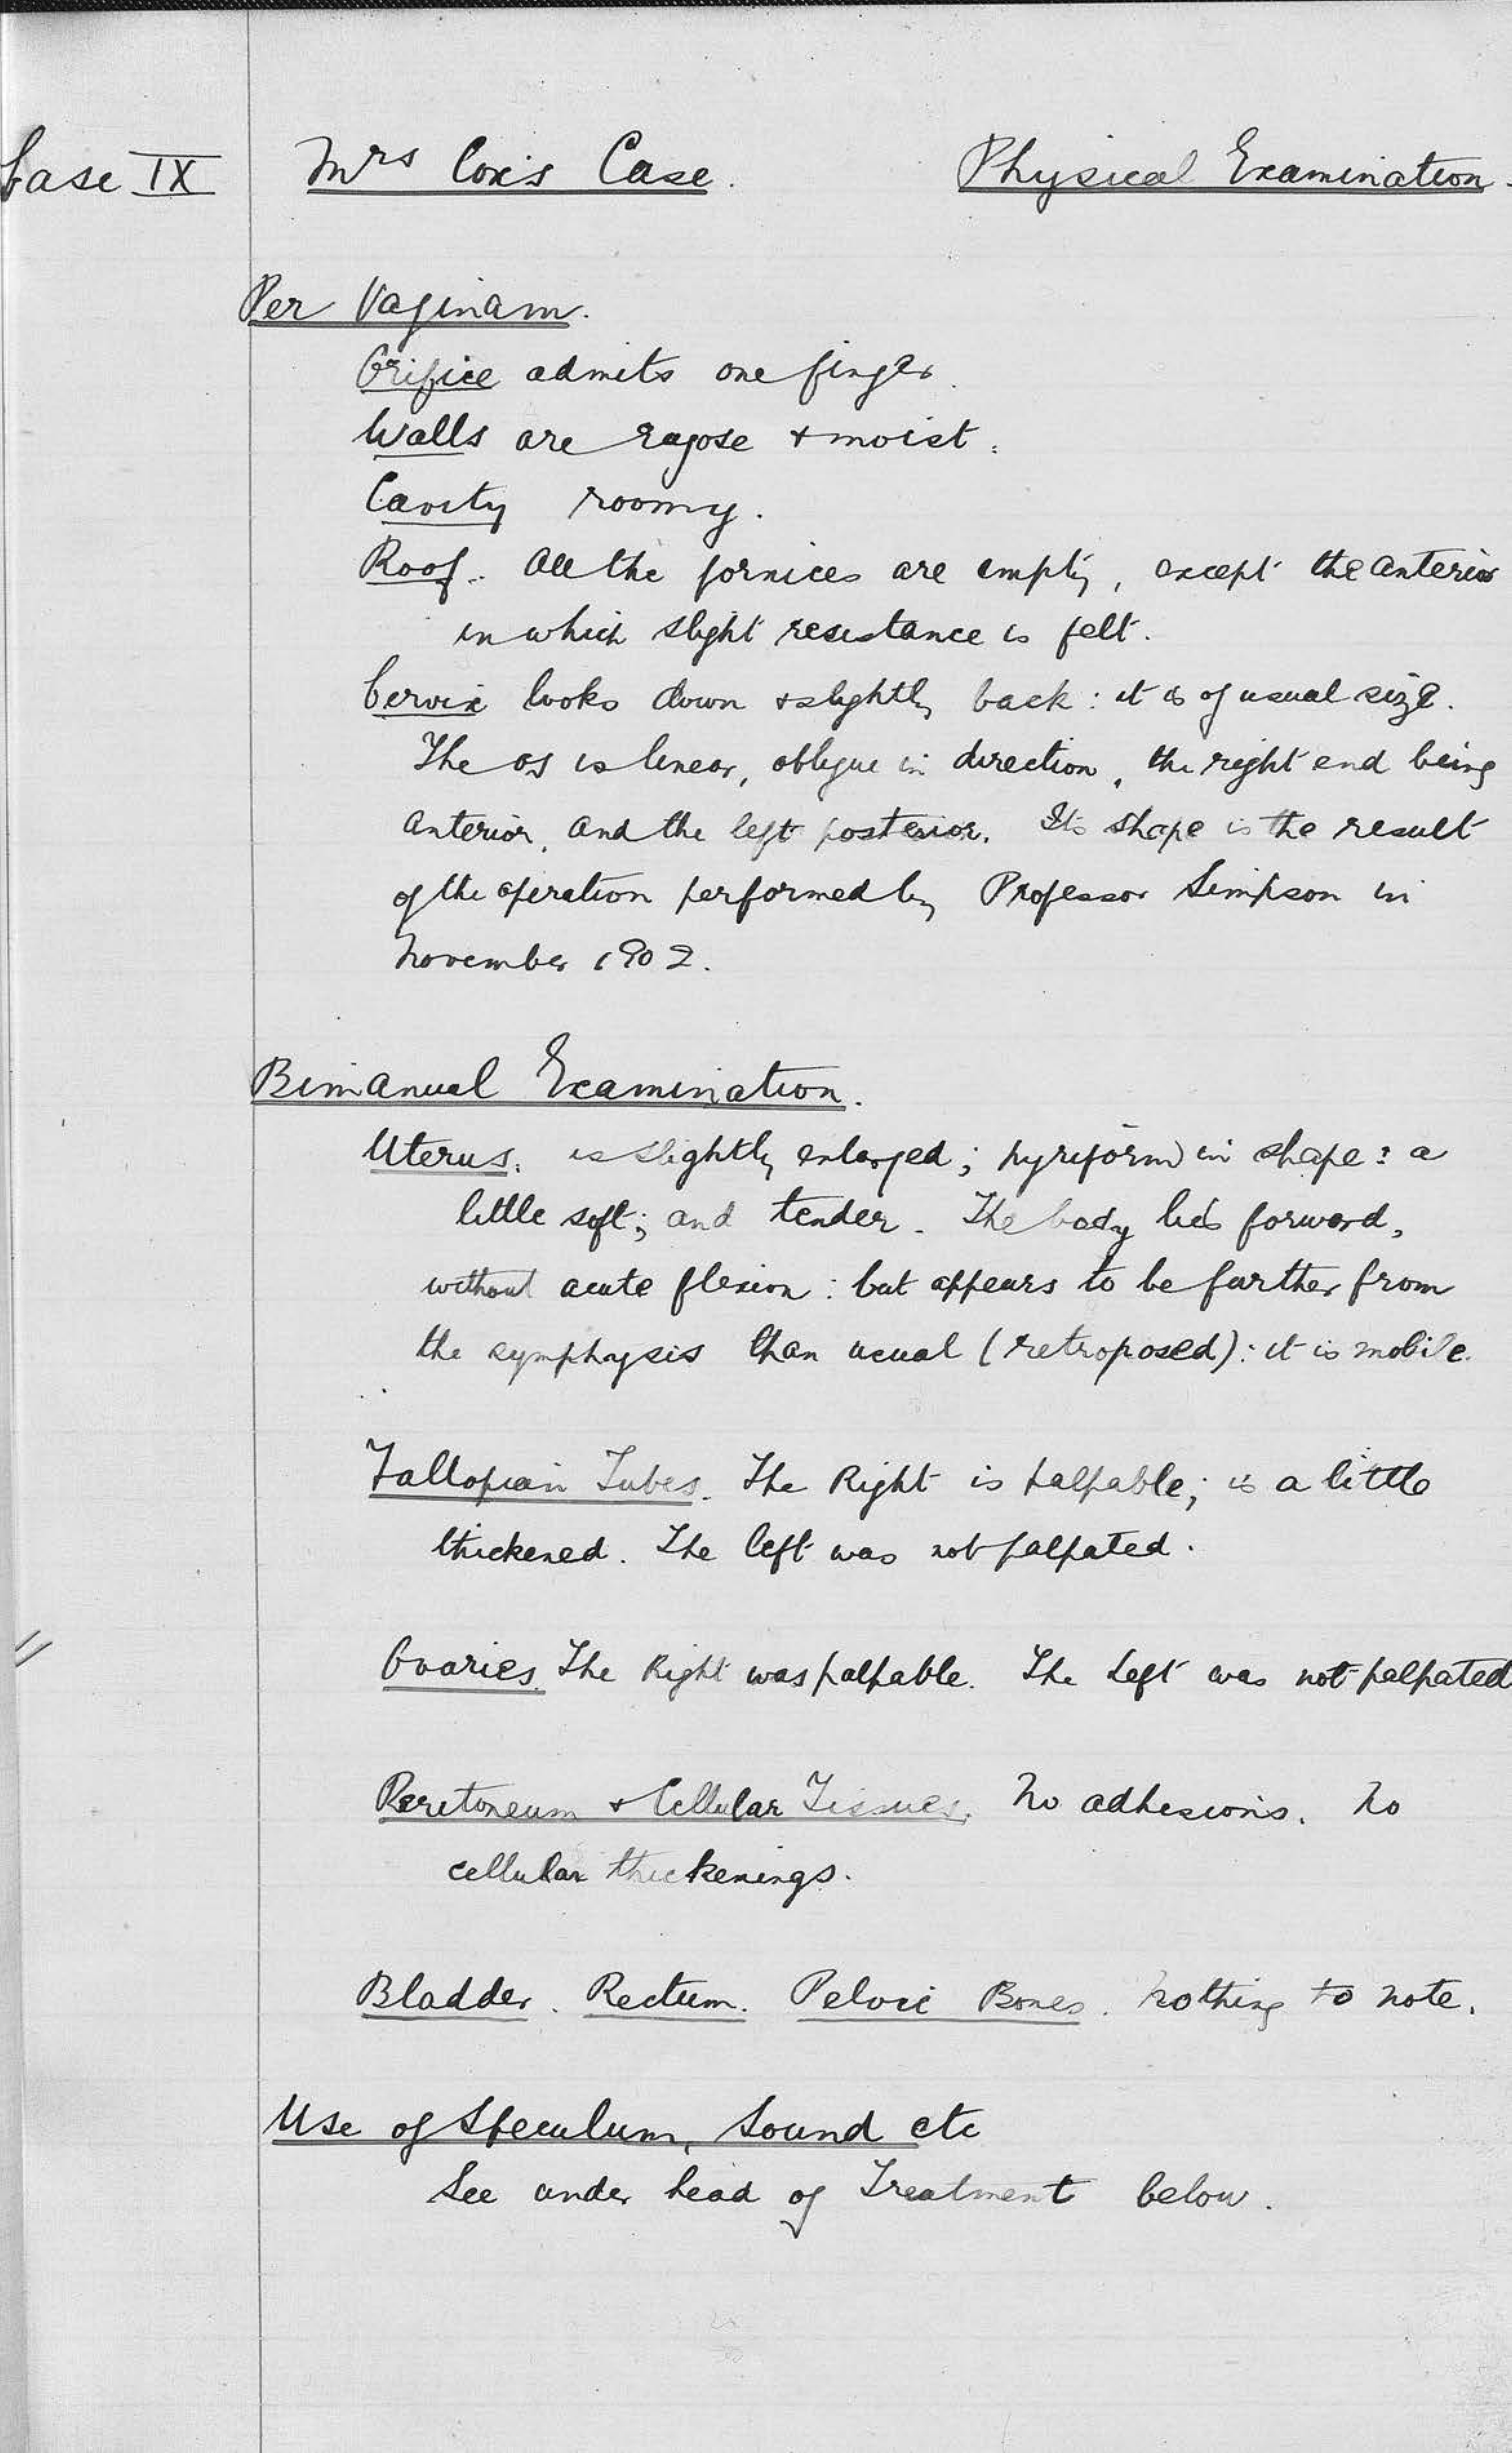 Case IX Mrs Cox's Case. Physical Examination.
Per Vaginam.
Orifice admits one finger.
Walls are rugose + moist.
Cavity roomy.
Roof. All the fornices are empty, except the anterior
in which slight resistance is felt.
Cervix looks down + slightly back: it is of usual size.
The os is linear, oblique in direction, the right end being
anterior, and the left posterior. Its shape is the result
of the operation performed by Professor Simpson in
November 1902.
Bimanual Examination.
Uterus. is slightly enlarged; pyriform in shape: a
little soft; and tender. The body lies forward,
without acute flexion: but appears to be further from
the symphysis than usual (retroposed): it is mobile.
Fallopian Tubes. The Right is palpable; is a little
thickened. The left was not palpated.
Ovaries. The Right was palpable. The Left was not palpated
Peritoneum + Cellular Tissues. No adhesions. No
cellular thickenings.
Bladder. Rectum. Pelvic Bones. Nothing to note.
Use of Speculum, Sound etc
See under head of Treatment below.